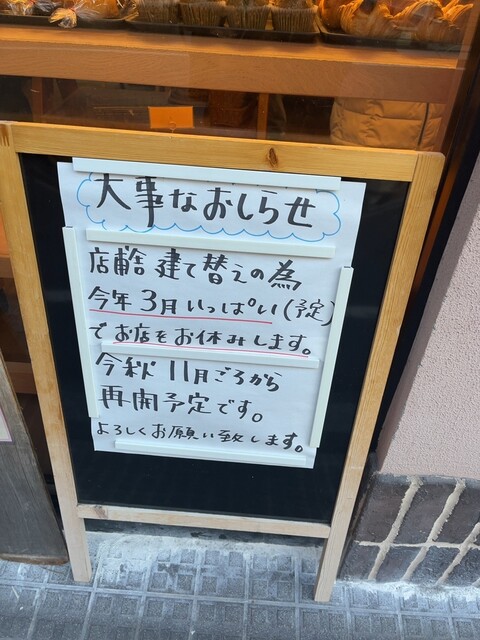 大事なおしらせ
店舗建て替えの為
今年3月いっぱい(予定)
でお店をお休みします。
今秋11月ごろから
再開予定です。
よろしくお願い致します。